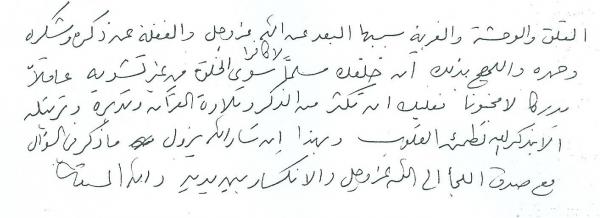 القلق والوحشة والغربة سببها البعد عن الله عز وجل والغفلة عن ذكره وشكره
وحمده واللهج بذلك أن خلقك مسلماً لا كافرا سوي الخلق من غير تشويه عاقلاً
مدركا لا مجنونا فعليك ان تكثر من الذكر وتلاوة القرآن وتدبره وترتيله
ألا بذكر الله تطمئن القلوب وبهذا إن شاء الله يزول ما ذكر في السؤال
مع صدق اللجأ الى الله عز وجل والانكسار بين يديه والله المستعان